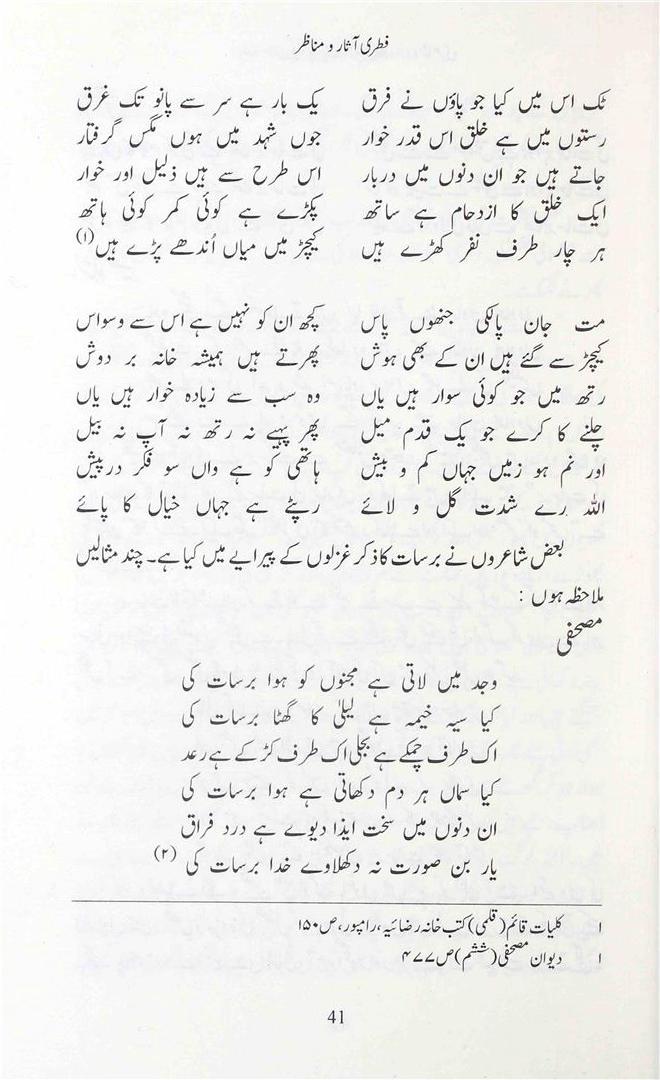 فطری آثار و مناظر
ٹک اس میں کیا جو پاؤں نے فرق یک بار ہے سر سے پانو تک غرق
رستوں میں ہے خلق اس قدر خوار جوں شہد میں ہوں مگس گرفتار
جاتے ہیں جو ان دنوں میں دربار اس طرح سے ہیں ذلیل اور خوار
ایک خلق کا ازدحام ہے ساتھ پکڑے ہے کوئی کمر کوئی ہاتھ
ہر چار طرف نفر کھڑے ہیں کیچڑ میں میاں اُندھے پڑے ہیں (۱)
مت جان پالکی جنھوں پاس کچھ ان کو نہیں ہے اس سے وسواس
کیچڑ سے گئے ہیں ان کے بھی ہوش پھرتے ہیں ہمیشہ خانہ بر دوش
رتھ میں جو کوئی سوار ہیں یاں وہ سب سے زیادہ خوار ہیں یاں
چلنے کا کرے جو یک قدم میل پھر پہیے نہ رتھ نہ آپ نہ بیل
اور نم ہو زمیں جہاں کم و بیش ہاتھی کو ہے واں سو فکر درپیش
اللہ رے شدت گل و لائے رپٹے ہے جہاں خیال کا پائے
بعض شاعروں نے برسات کا ذکر غزلوں کے پیرایے میں کیا ہے۔ چند مثالیں
ملاحظہ ہوں :
مصحفی
وجد میں لاتی ہے مجنوں کو ہوا برسات کی
کیا سیہ خیمہ ہے لیلیٰ کا گھٹا برسات کی
اک طرف چمکے ہے بجلی اک طرف کڑکے ہے رعد
کیا سماں ہر دم دکھاتی ہے ہوا برسات کی
ان دنوں میں سخت ایذا دیوے ہے درد فراق
یار بن صورت نہ دکھلاوے خدا برسات کی (۲)
۱ کلیات قائم (قلمی) کتب خانہ رضائیہ، رامپور، ص ۱۵۰
۱ دیوان مصحفی (ششم) ص ۴۷۷
41